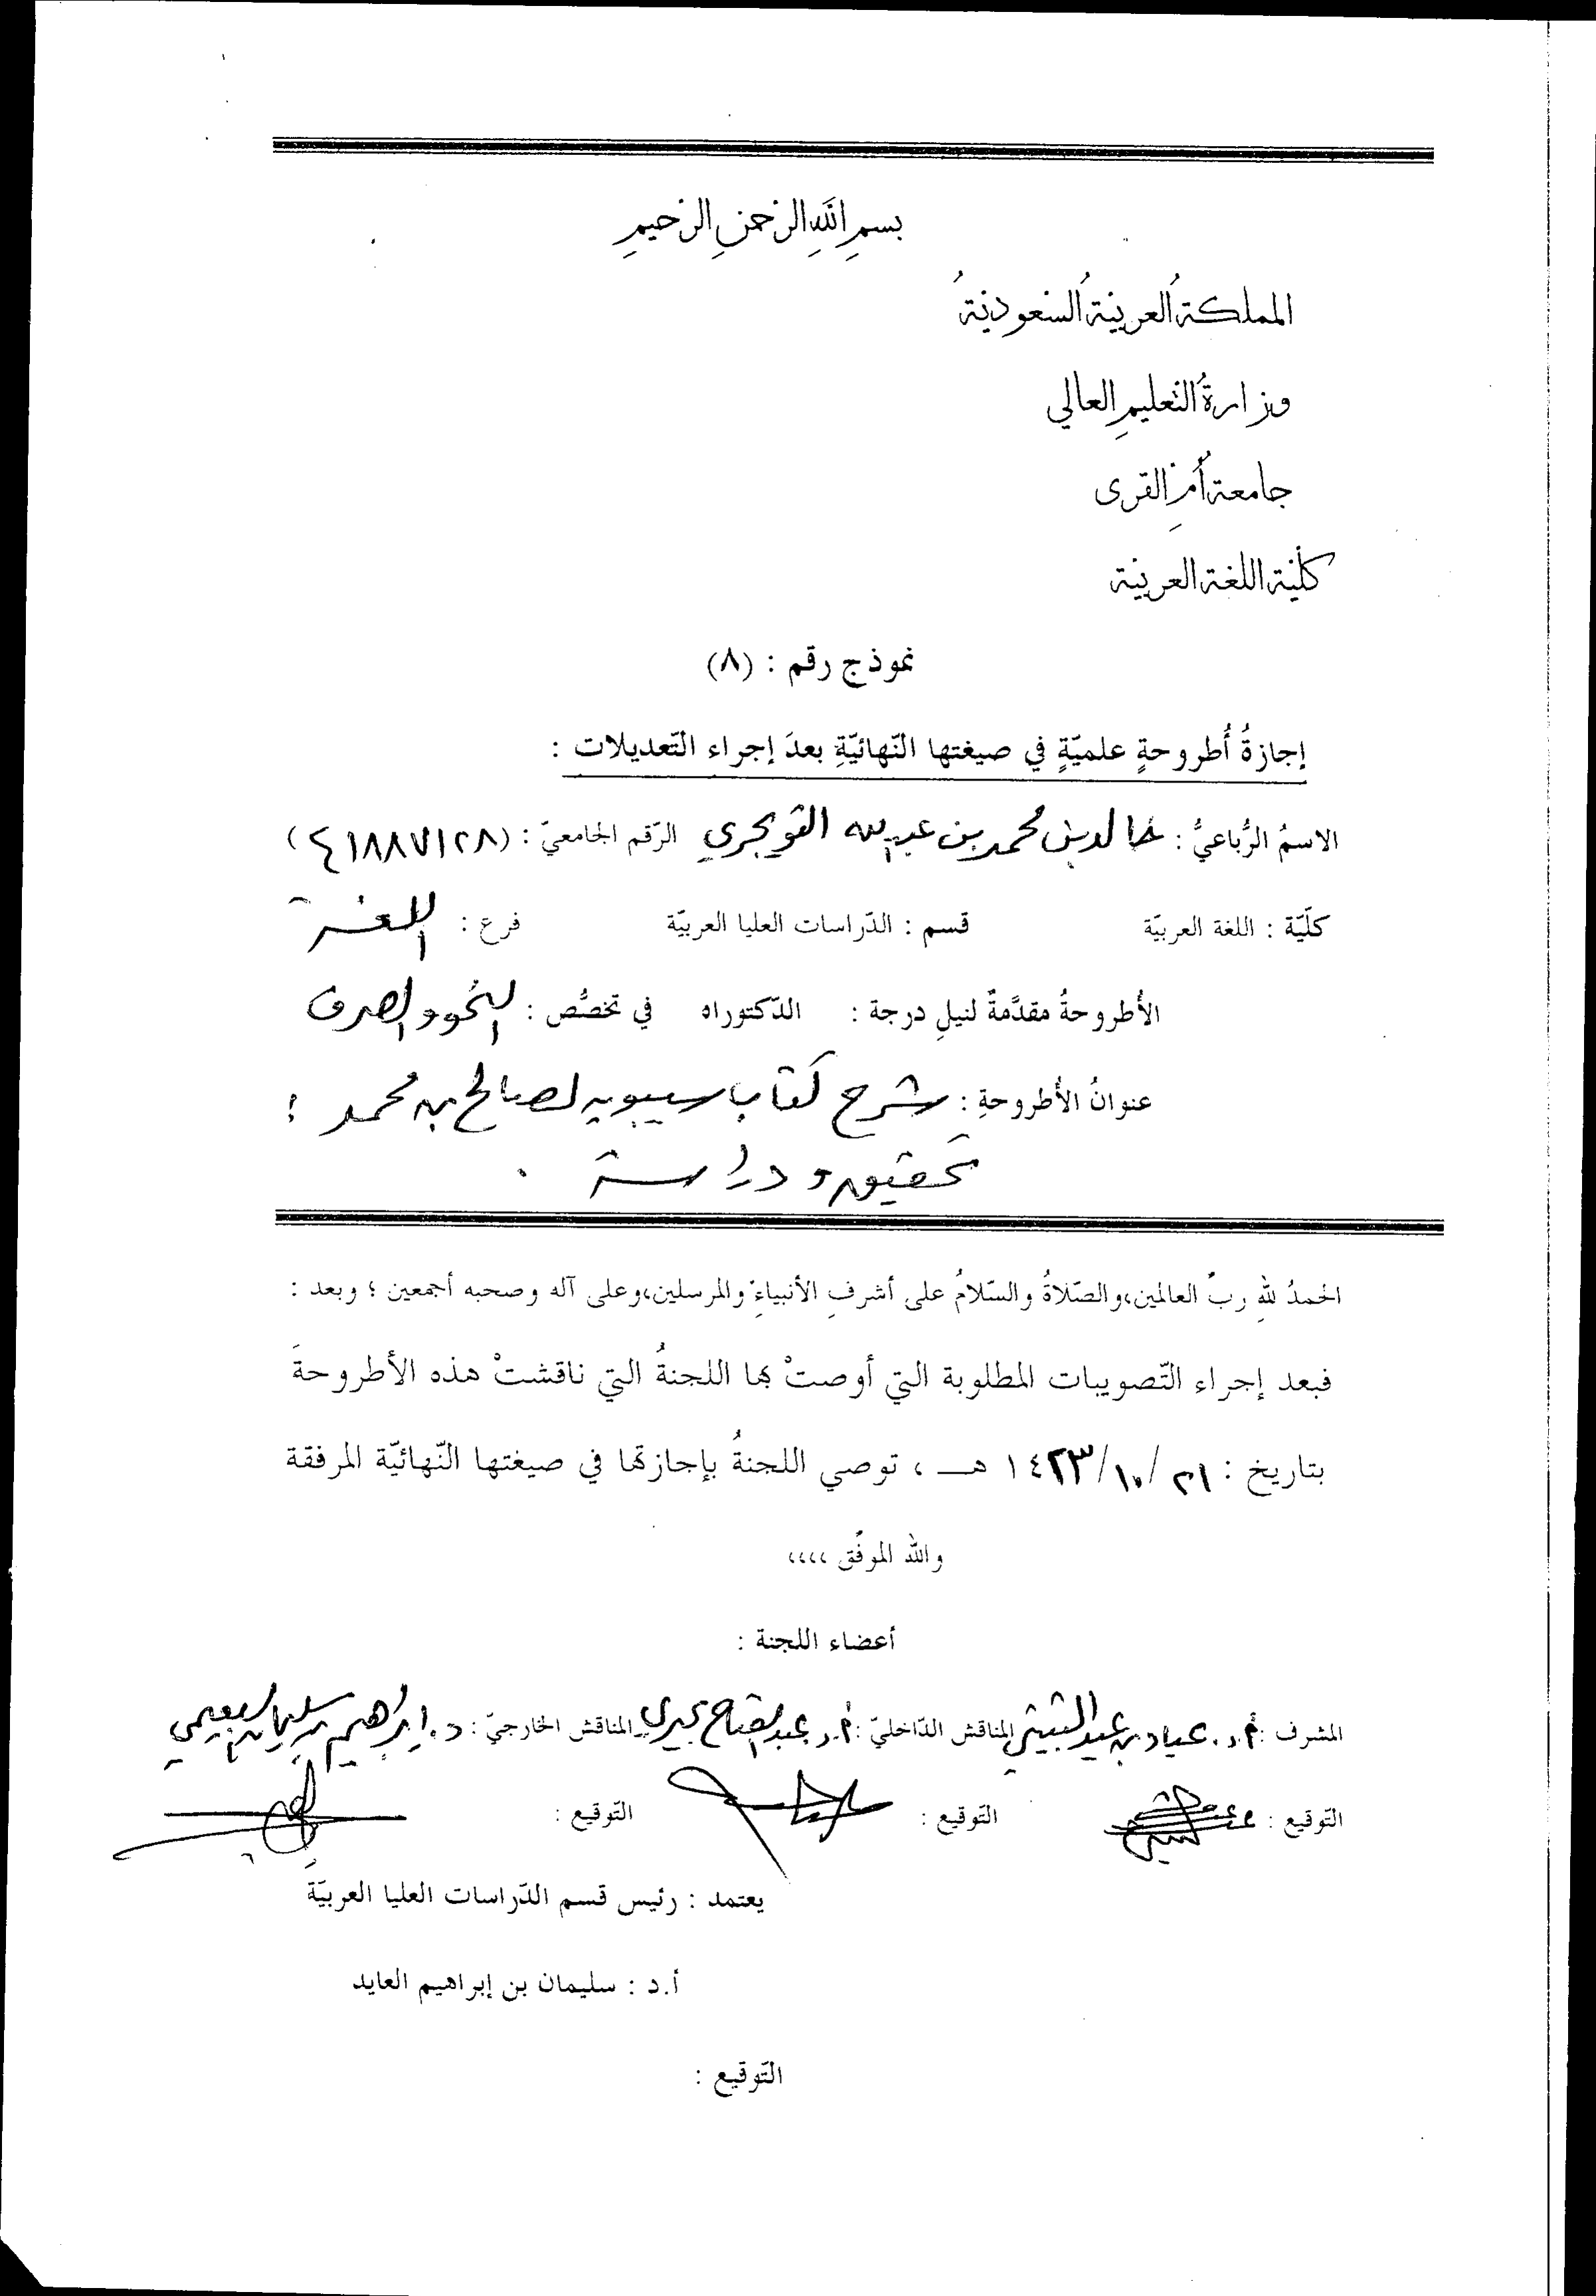 بسمِ اللهِ الرّحمنِ الرّحيمِ
المملكةُ العربيّةُ السّعوديّةُ
وزارةُ التّعليمِ العالي
جامعة أُمِّ القرى
كلّيّة اللغة العربيّة
نموذج رقم : (٨)
إجازةُ أُطروحةٍ علميّةٍ في صيغتها النّهائيّةِ بعدَ إجراءِ التّعديلات :
الاسمُ الرُّباعيُّ : خالد بن محمد بن عبدالله التويجري الرّقم الجامعيّ : (٤١٨٨٧١٢٨)
كلّيّة : اللغة العربيّة قسم : الدّراسات العليا العربيّة فرع : اللغة
الأُطروحةُ مقدَّمةٌ لنيلِ درجة : الدّكتوراه في تخصُّص : النحو والصرف
عنوانُ الأُطروحةِ : شرح كتاب سيبويه لصالح بن محمد :
تحقيق ودراسة .
الحمدُ للهِ ربِّ العالمين،والصّلاةُ والسّلامُ على أشرفِ الأنبياءِ والمرسلين،وعلى آله وصحبه أجمعين ؛ وبعد :
فبعد إجراء التّصويبات المطلوبة التي أوصتْ بها اللجنةُ التي ناقشتْ هذه الأطروحةَ
بتاريخ : ٢١/١٠/١٤٢٣ هـ ، توصي اللجنةُ بإجازتها في صيغتها النّهائيّة المرفقة
والله الموفّق ،،،،
أعضاء اللجنة :
المشرف : أ.د. عياد بن عيد الثبيتي المناقش الدّاخليّ : أ.د عبدالفتاح بحيري المناقش الخارجيّ : د. إبراهيم بن سليمان البعيمي
التّوقيع : التّوقيع : التّوقيع :
يعتمد : رئيس قسم الدّراسات العليا العربيّة
أ.د : سليمان بن إبراهيم العايد
التّوقيع :